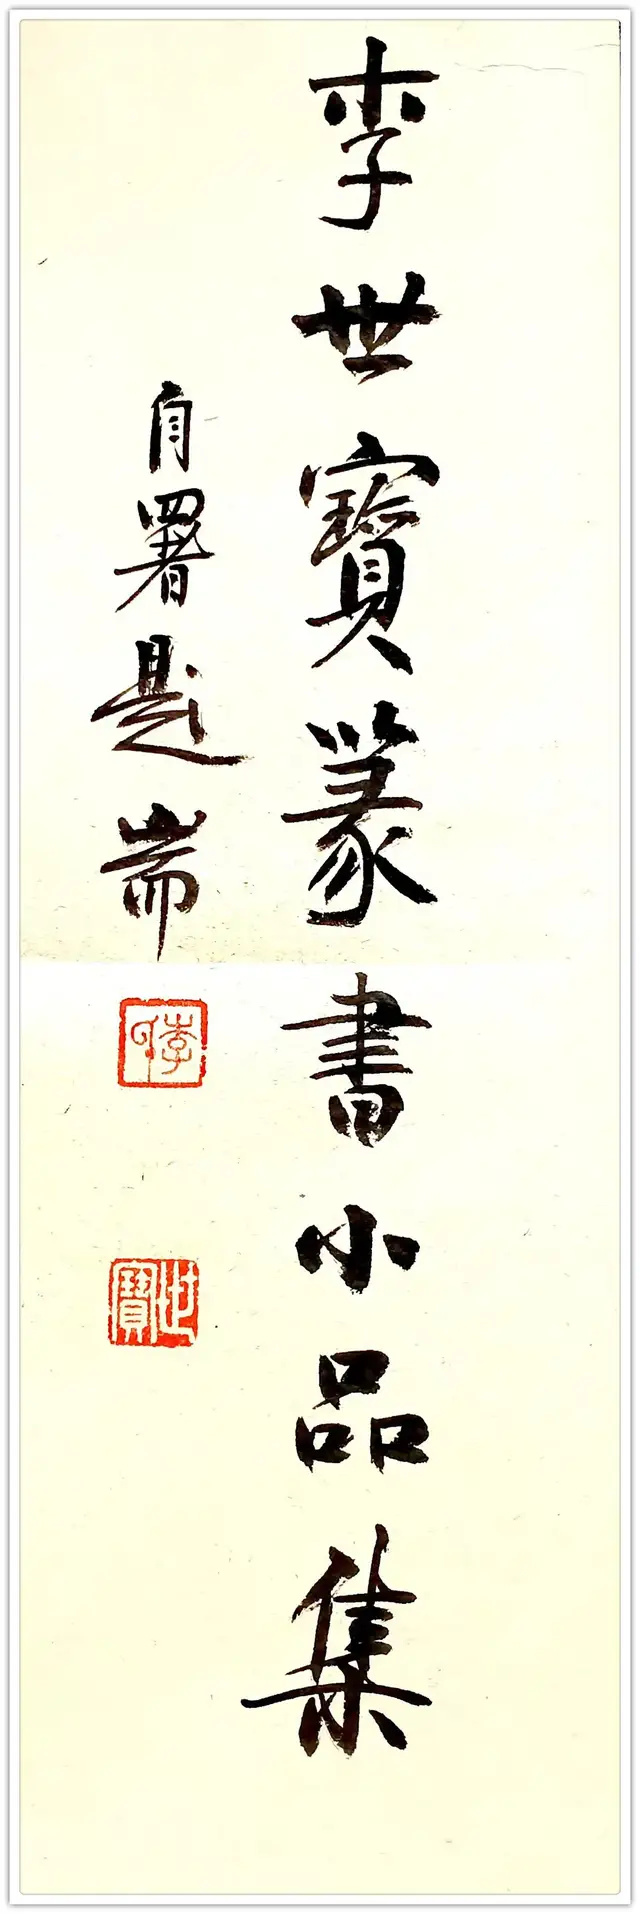 李世寶篆書小品集
自署題耑
李
世寶